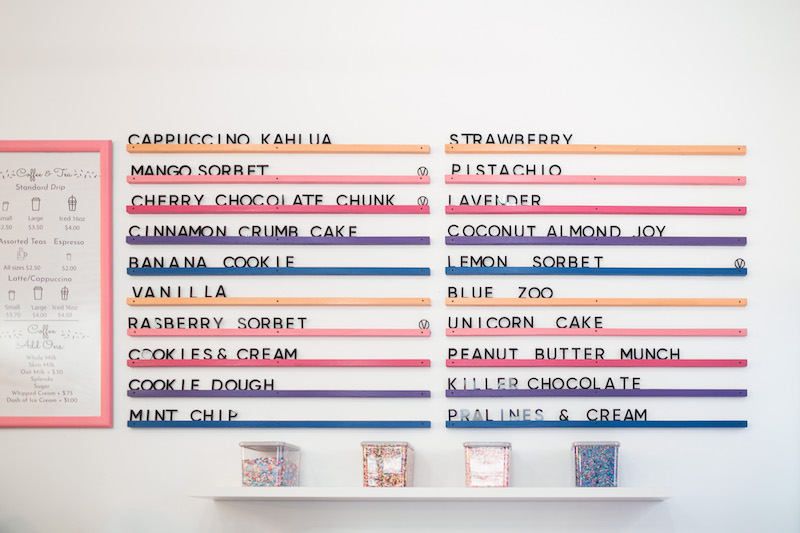 Coffee & Tea
Standard Drip
Small Large Iced 16oz
$2.50 $3.50 $4.00
Assorted Teas Espresso
All sizes $2.50 $2.00
Latte/Cappuccino
Small Large Iced 16oz
$3.70 $4.00
Coffee
Add Ons
Whole Milk
Skim Milk
Oat Milk + $.50
Splenda
Sugar
Whipped Cream + $.75
Dash of Ice Cream + $1.00
CAPPUCCINO KAHLUA
MANGO SORBET V
CHERRY CHOCOLATE CHUNK V
CINNAMON CRUMB CAKE
BANANA COOKIE
VANILLA
RASBERRY SORBET V
COOKIES & CREAM
COOKIE DOUGH
MINT CHIP
STRAWBERRY
PISTACHIO
LAVENDER
COCONUT ALMOND JOY
LEMON SORBET V
BLUE ZOO
UNICORN CAKE
PEANUT BUTTER MUNCH
KILLER CHOCOLATE
PRALINES & CREAM